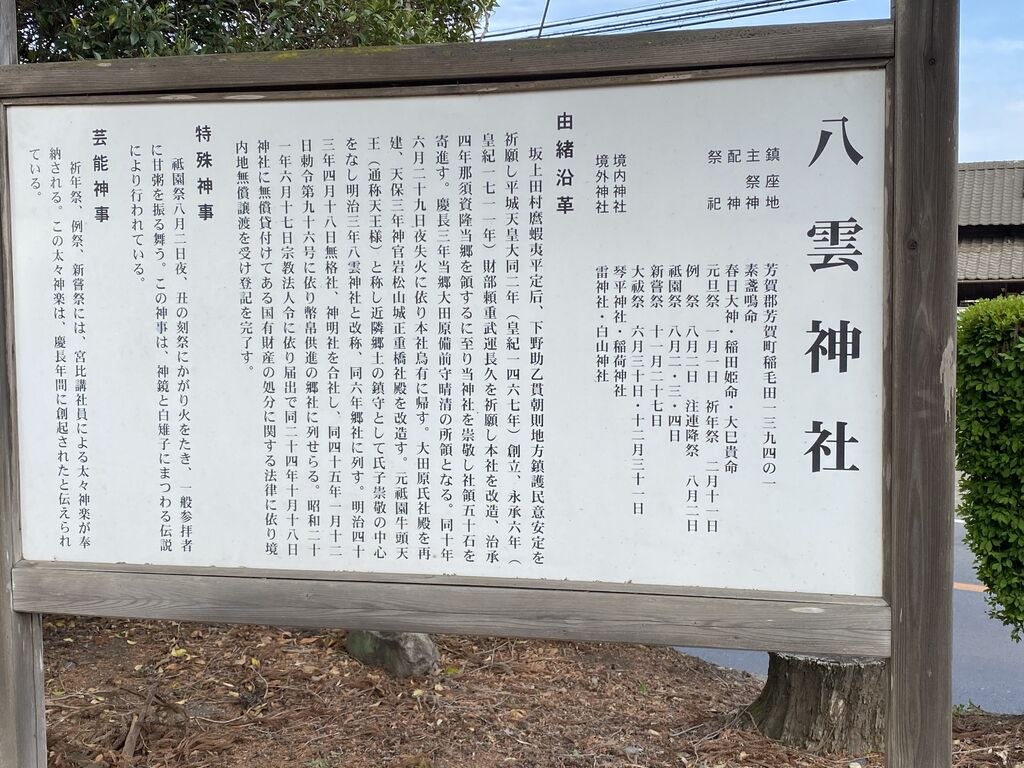 八雲神社
鎮座地　芳賀郡芳賀町稲毛田一三九四の一
主祭神　素盞鳴命
配神　春日大神・稲田姫命・大巳貴命
祭祀　元旦祭　一月一日　祈年祭　二月十一日
例祭　八月二日　注連降祭　八月二日
祇園祭　八月二・三・四日
新嘗祭　十一月二十七日
大祓祭　六月三十日・十二月三十一日
境内神社　琴平神社・稲荷神社
境外神社　雷神社・白山神社
由緒沿革
坂上田村麿蝦夷平定后、下野助乙貫朝則地方鎮護民意安定を
祈願し平城天皇大同二年（皇紀一四六七年）創立、永承六年（
皇紀一七一一年）財部頼重武運長久を祈願し本社を改造、治承
四年那須資隆当郷を領するに至り当神社を崇敬し社領五十石を
寄進す。慶長三年当郷大田原備前守晴清の所領となる。同十年
六月二十九日夜失火に依り本社烏有に帰す。大田原氏社殿を再
建、天保三年神官岩松山城正重橋社殿を改造す。元祇園牛頭天
王（通称天王様）と称し近隣郷土の鎮守として氏子崇敬の中心
をなし明治三年八雲神社と改称、同六年郷社に列す。明治四十
三年四月十八日無格社、神明社を合社し、同四十五年一月十二
日勅令第九十六号に依り幣帛供進の郷社に列せらる。昭和二十
一年六月十七日宗教法人令に依り届出で同二十四年十月十八日
神社に無償貸付けてある国有財産の処分に関する法律に依り境
内地無償譲渡を受け登記を完了す。
特殊神事
祇園祭八月二日夜、丑の刻祭にかがり火をたき、一般参拝者
に甘粥を振る舞う。この神事は、神鏡と白雉子にまつわる伝説
により行われている。
芸能神事
祈年祭、例祭、新嘗祭には、宮比講社員による太々神楽が奉
納される。この太々神楽は、慶長年間に創起されたと伝えられ
ている。